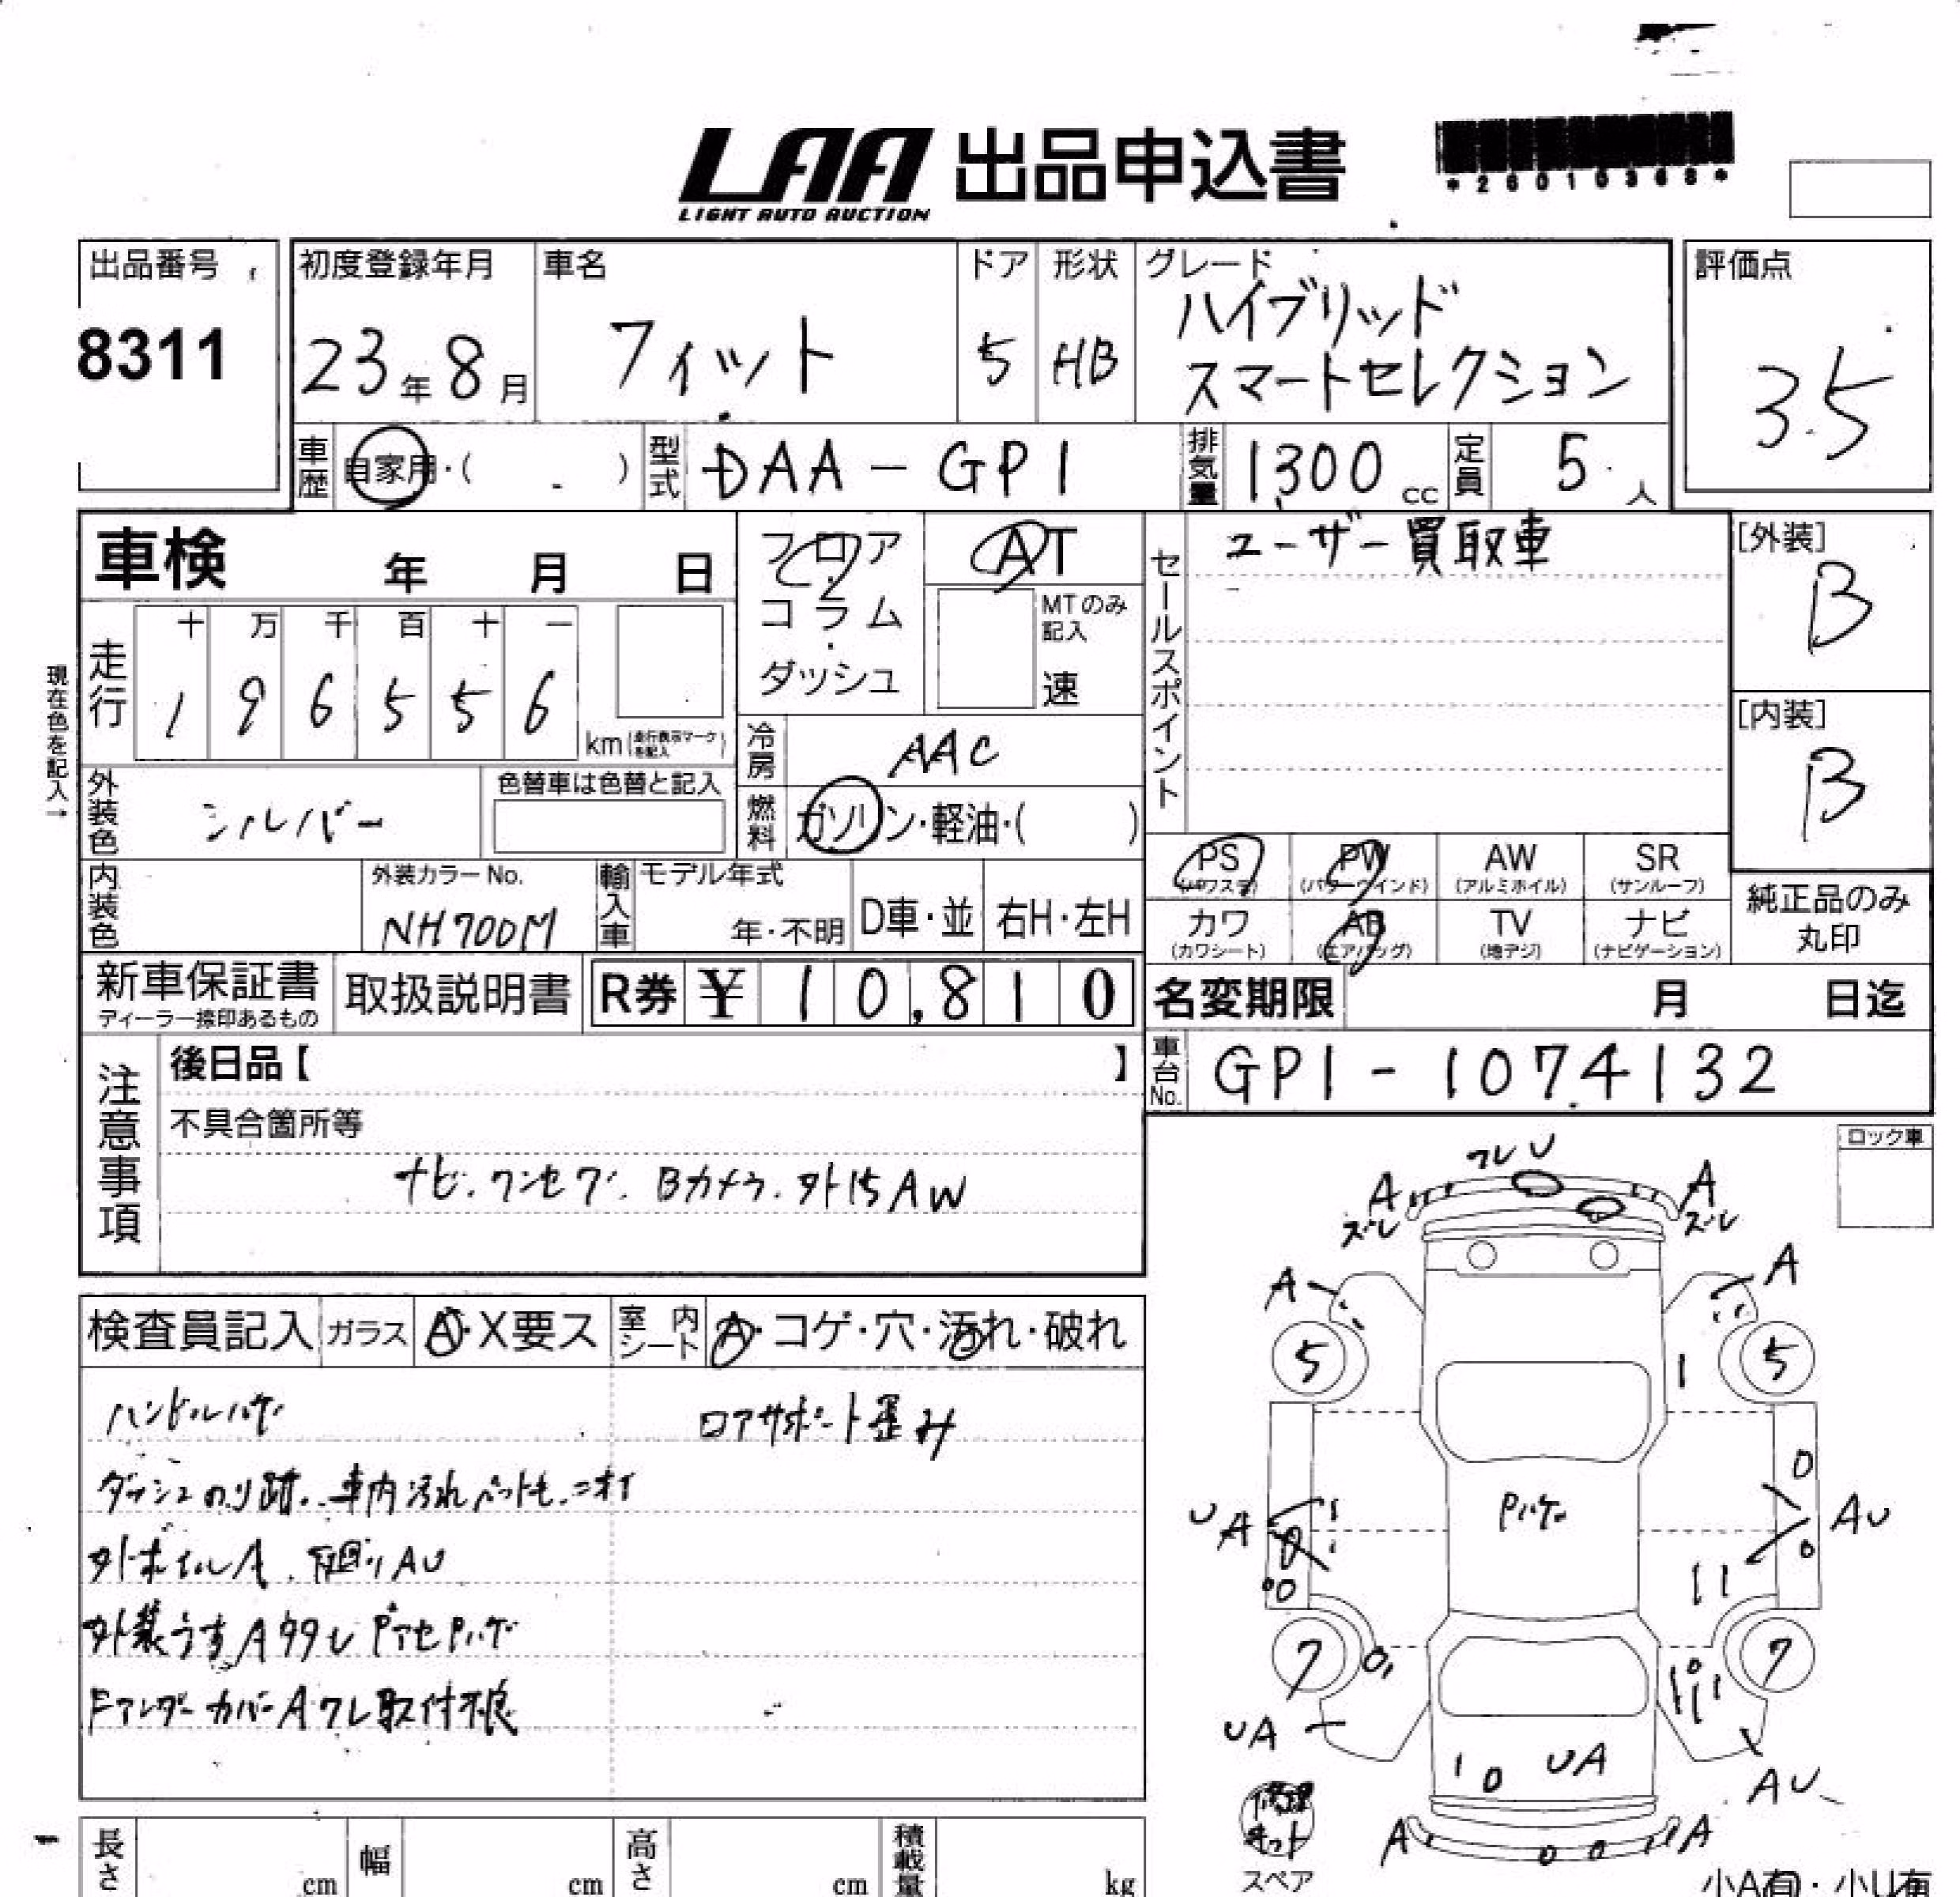 LAA 出品申込書
LIGHT AUTO AUCTION
*26010368*
出品番号
8311
初度登録年月
23年8月
車名
フィット
ドア
5
形状
HB
グレード
ハイブリッド
スマートセレクション
評価点
3.5
車歴
自家用・( )
型式
DAA-GP1
排気量
1,300 cc
定員
5人
車検 年 月 日
フロア・コラム・ダッシュ
AT
MTのみ記入
速
セールスポイント
ユーザー買取車
[外装]
B
[内装]
B
現在色を記入→
走行
十 万 千 百 十 一
1 9 6 5 5 6
km(走行表示マークを記入)
冷房
AAC
燃料
ガソリン・軽油・( )
外装色
シルバー
色替車は色替と記入
内装色
外装カラーNo.
NH700M
輸入車
モデル年式
年・不明
D車・並
右H・左H
PS
(パワステ)
PW
(パワーウインド)
AW
(アルミホイル)
SR
(サンルーフ)
カワ
(カワシート)
AB
(エアバッグ)
TV
(地デジ)
ナビ
(ナビゲーション)
純正品のみ
丸印
新車保証書
ディーラー捺印あるもの
取扱説明書
R券 ¥ 10,810
名変期限 月 日迄
車台No.
GP1-1074132
注意事項
後日品【 】
不具合箇所等
ナビ.ワンセグ.Bカメラ.外15AW
ロック車
検査員記入
ガラス
A・X要ス
室内シート
A・コゲ・穴・汚れ・破れ
ハンドルハゲ
ロアサポート歪み
ダッシュのり跡.車内汚れペット毛.ニオイ
外ホイルA.下廻りAU
外装うすA タタU PアセPハゲ
FアンダーカバーAワレ取付不良
ワレ U
A
ズレ
A
ズレ
A
A
5
5
1
Pハゲ
UA
AU
7
7
UA
UA
AU
A
A
修理キット
スペア
長さ cm
幅 cm
高さ cm
積載量 kg
小A有・小U有